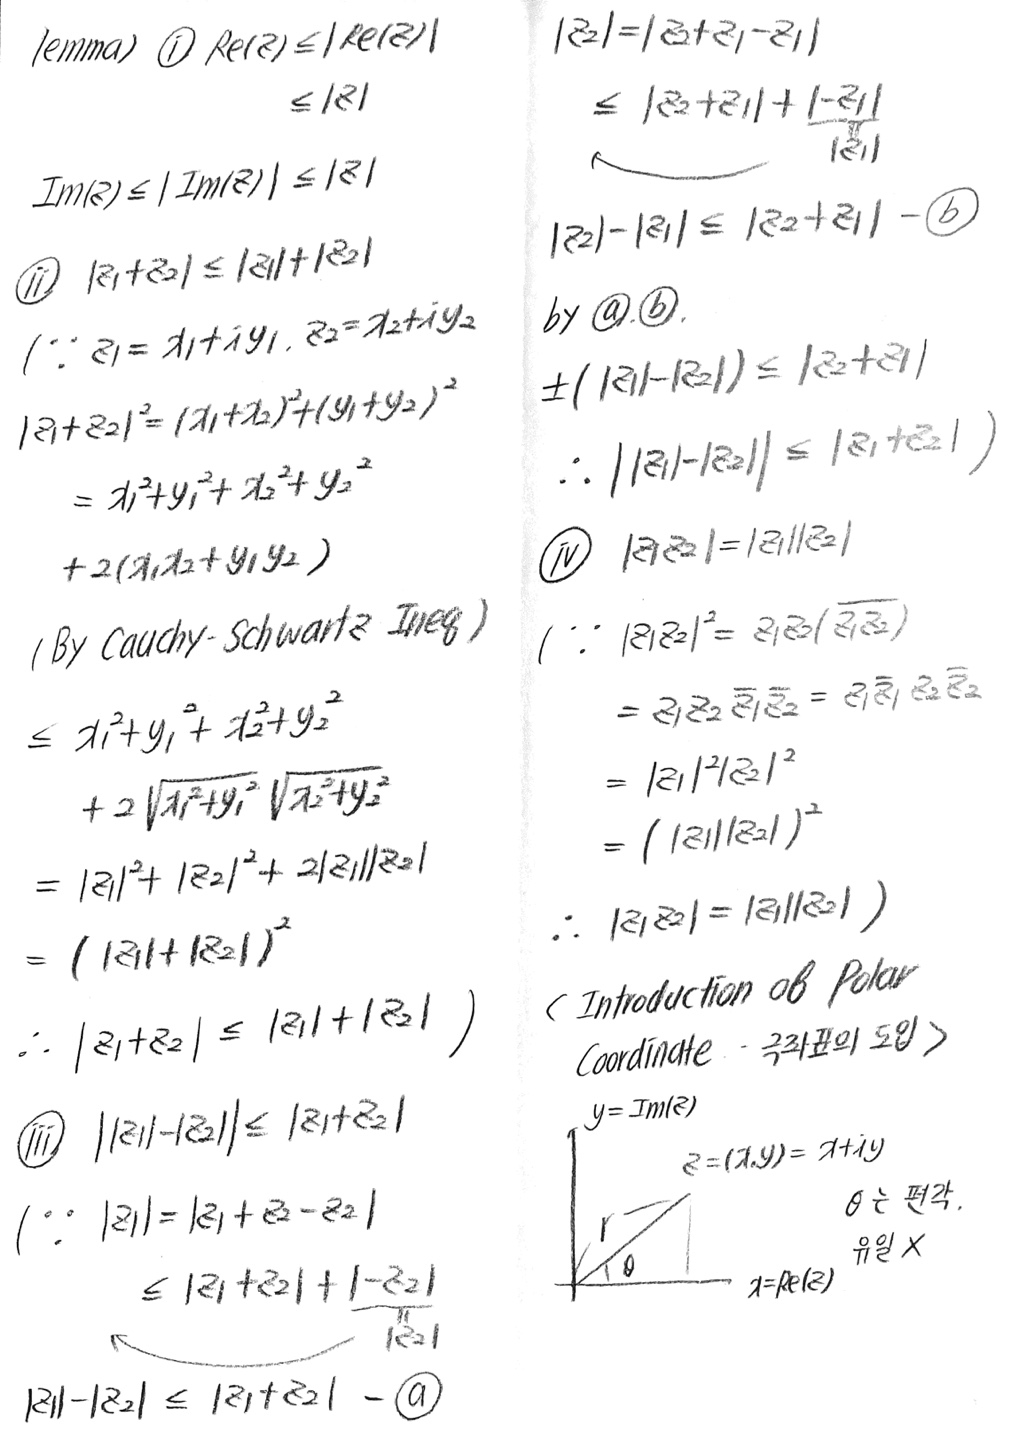 lemma) ⓘ Re(z) ≤ |Re(z)|
≤ |z|
Im(z) ≤ |Im(z)| ≤ |z|
ⓘⓘ |z₁+z₂| ≤ |z₁|+|z₂|
(∵ z₁ = x₁+iy₁. z₂ = x₂+iy₂
|z₁+z₂|² = (x₁+x₂)²+(y₁+y₂)²
= x₁²+y₁²+x₂²+y₂²
+2(x₁x₂+y₁y₂)
(By Cauchy-Schwartz Ineq)
≤ x₁²+y₁²+x₂²+y₂²
+2√(x₁²+y₁²) √(x₂²+y₂²)
= |z₁|²+|z₂|²+2|z₁||z₂|
= (|z₁|+|z₂|)²
∴ |z₁+z₂| ≤ |z₁|+|z₂| )
ⓘⓘⓘ ||z₁|-|z₂|| ≤ |z₁+z₂|
(∵ |z₁| = |z₁+z₂-z₂|
≤ |z₁+z₂|+|-z₂|
=
|z₂|
|z₁|-|z₂| ≤ |z₁+z₂| - ⓐ
|z₂| = |z₂+z₁-z₁|
≤ |z₂+z₁|+|-z₁|
=
|z₁|
|z₂|-|z₁| ≤ |z₂+z₁| - ⓑ
by ⓐ.ⓑ.
±(|z₁|-|z₂|) ≤ |z₂+z₁|
∴ ||z₁|-|z₂|| ≤ |z₁+z₂| )
ⓘⓥ |z₁z₂| = |z₁||z₂|
(∵ |z₁z₂|² = z₁z₂(z̅₁z̅₂)
= z₁z₂z̅₁z̅₂ = z₁z̅₁z₂z̅₂
= |z₁|²|z₂|²
= (|z₁||z₂|)²
∴ |z₁z₂| = |z₁||z₂| )
< Introduction of Polar
Coordinate - 극좌표의 도입 >
y=Im(z)
z=(x.y)= x+iy
θ는 편각.
r
유일 X
θ
x=Re(z)